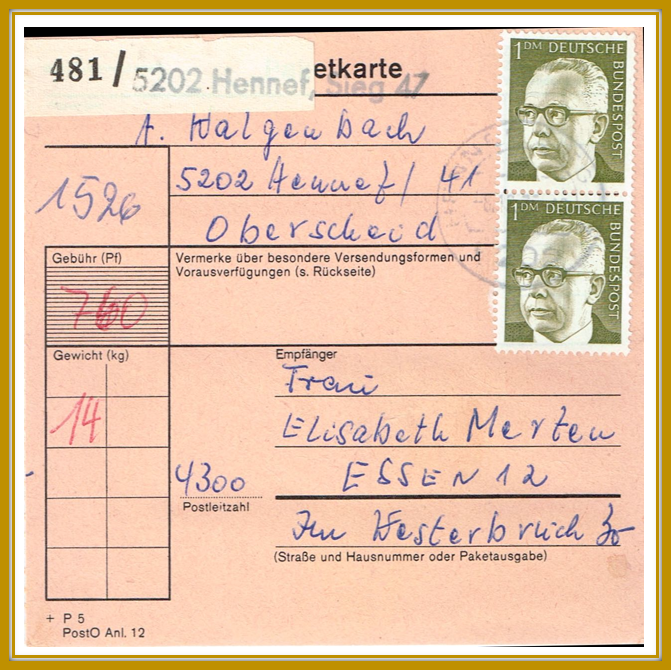 481 / 5202 Hennef, Sieg 47
etkarte
1 DM DEUTSCHE BUNDESPOST
A. Halgenbach
5202 Hennef / 41
Oberscheid
1526
1 DM DEUTSCHE BUNDESPOST
Gebühr (Pf)
760
Vermerke über besondere Versendungsformen und
Vorausverfügungen (s. Rückseite)
Gewicht (kg)
14
Empfänger
Frau
Elisabeth Merten
4300
ESSEN 12
Postleitzahl
Im Westerbruch 30
(Straße und Hausnummer oder Paketausgabe)
+ P 5
PostO Anl. 12